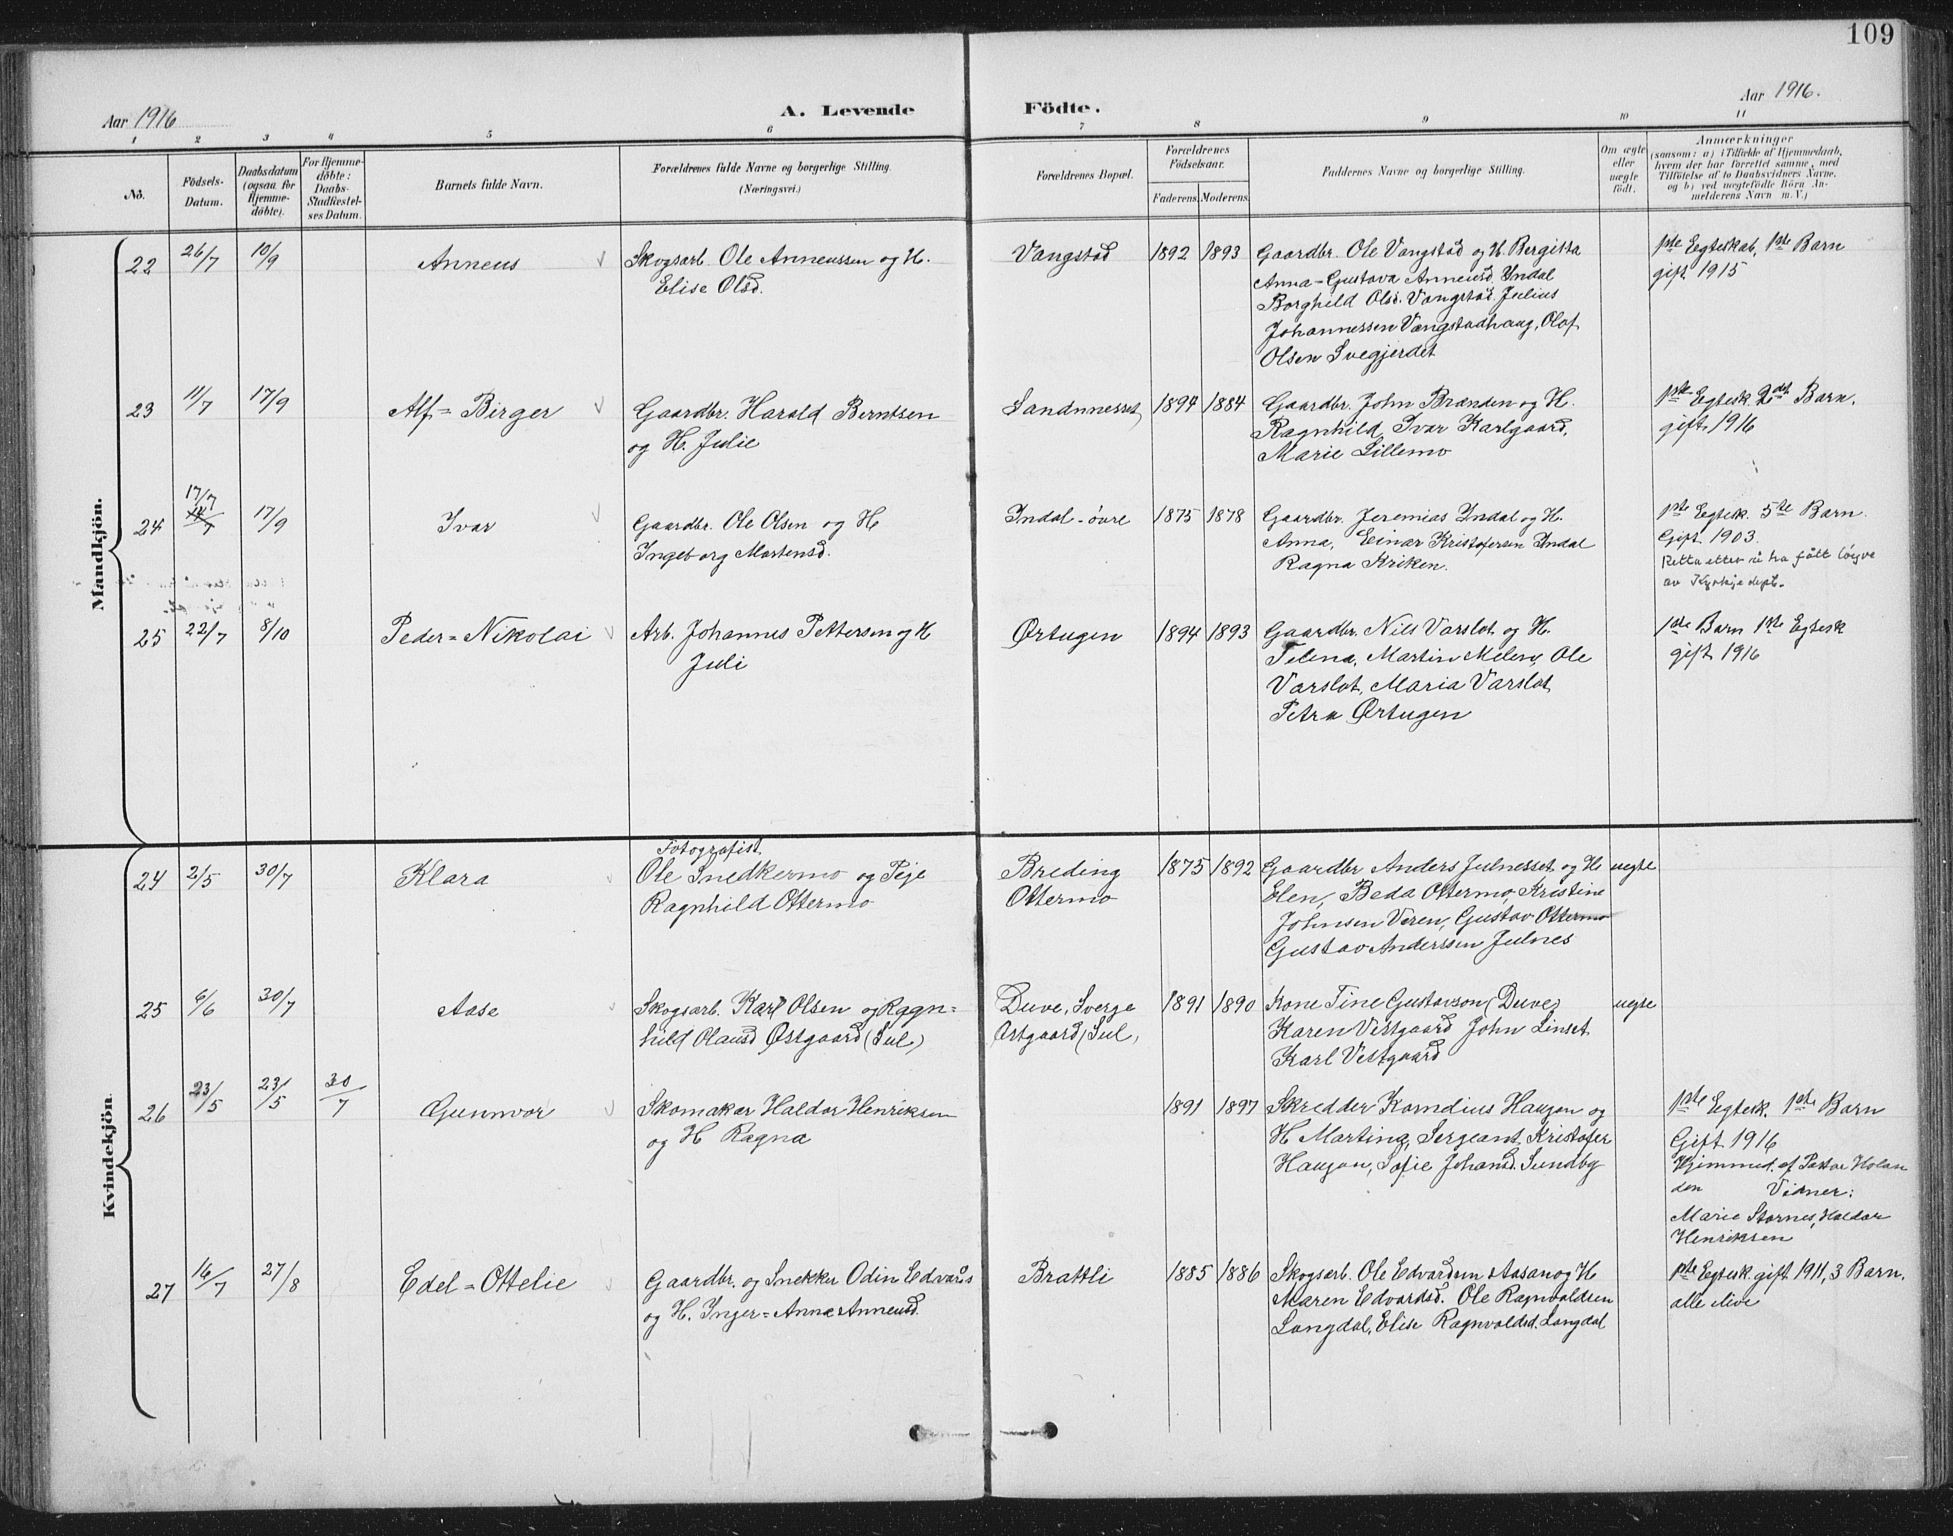 109
Aar 1916
A. Levende Födte.
Aar 1916.
1 2 3 4 5 6 7 8 9 10 11
No.
Födsels-
Datum.
Daabsdatum
(ogsaa for
Hjemme-
döbte).
For Hjemme-
döbte:
Daabs-
Stadfæstel-
ses Datum.
Barnets fulde Navn.
Forældrenes fulde Navne og borgerlige Stilling.
(Næringsvei.)
Forældrenes Bopæl.
Forældrenes
Födselsaar.
Faderens. Moderens.
Faddernes Navne og borgerlige Stilling.
Om ægte
eller
uægte
födt.
Anmærkninger
(saasom: a) i Tilfælde af Hjemmedaab,
hvem der har forrettet samme, med
Tilföielse af to Daabsvidners Navne,
og b) ved uægtefödte Börn An-
melderens Navn m. V.)
Mandkjön.
22 26/7 10/9 Anneus
Skogsarb. Ole Anneussen og H.
Elise Olsd.
Vangstad 1892 1893
Gaardbr. Ole Vangstad og H. Bergitta
Anna-Gustava Anneusd. Indal
Borghild Olsd. Vangstad. Julius
Johannessen Vangstadhaug, Olaf
Olsen Svegjerdet
1ste Egteskab, 1ste Barn
gift 1915
23 11/7 17/9 Alf-Birger
Gaardbr. Harald Berntsen
og H. Julie
Sandnesset 1894 1884
Gaardbr. John Brænden og H.
Ragnhild, Ivar Karlgaard,
Marie Lillemo
1ste Egtesk 2det Barn.
gift 1916
24 17/7 17/9 Ivar
Gaardbr. Ole Olsen og H
Ingeborg Martensd.
Indal-övre 1875 1878
Gaardbr. Jeremias Indal og H.
Anna, Einar Kristofersen Indal
Ragna Kriken.
1ste Egtesk. 5te Barn.
Gift. 1903.
Retta etter å ha fått löyve
av Kyrkjedept.
25 22/7 8/10 Peder-Nikolai
Arb. Johannes Pettersen og H
Juli
Örtugen 1894 1893
Gaardbr. Nils Varslot og H.
Telena, Martin Melen, Ole
Varslot, Maria Varslot,
Petra Örtugen
1ste Barn 1ste Egtesk
gift 1916
Kvindekjön.
24 2/5 30/7 Klara
Fotografist.
Ole Snedkermo og Peje
Ragnhild Ottermo
Breding
Ottermo
1875 1892
Gaardbr Anders Julnesset og H
Elen, Beda Ottermo, Kristine
Johnsen Veren, Gustav Ottermo
Gustav Anderssen Julnes
uegte
25 6/6 30/7 Aase
Skogsarb. Karl Olsen og Ragn-
hild Olausd Östgaard (Sul)
Duve, Sverge
Östgaard (Sul)
1891 1890
Kone Tine Gustavson (Duve)
Karen Vestgaard John Linset
Karl Vestgaard
uegte
26 23/5 23/5 30/7 Gunnvor
Skomaker Haldor Henriksen
og H Ragna
1891 1897
Skredder Kornelius Haugan og
H Martina, Sergeant Kristofer
Haugan, Sofie Johansd. Sundby
1ste Egtesk. 1ste Barn
Gift 1916
Hjimmed. af Pastor Holan
den Vidner:
Marie Stornes, Haldor
Henriksen
27 16/7 27/8 Edel-Ottelie
Gaardbr. og Snekker Odin Edvards
og H. Inger-Anna Anneusd.
Brattli 1885 1886
Skogsarb. Ole Edvardsen Aasan og H
Maren Edvardsd. Ole Ragnvaldsen
Langdal, Elise Ragnvaldsd. Langdal
1ste Egtesk. gift 1911, 3 Barn,
alle ilive